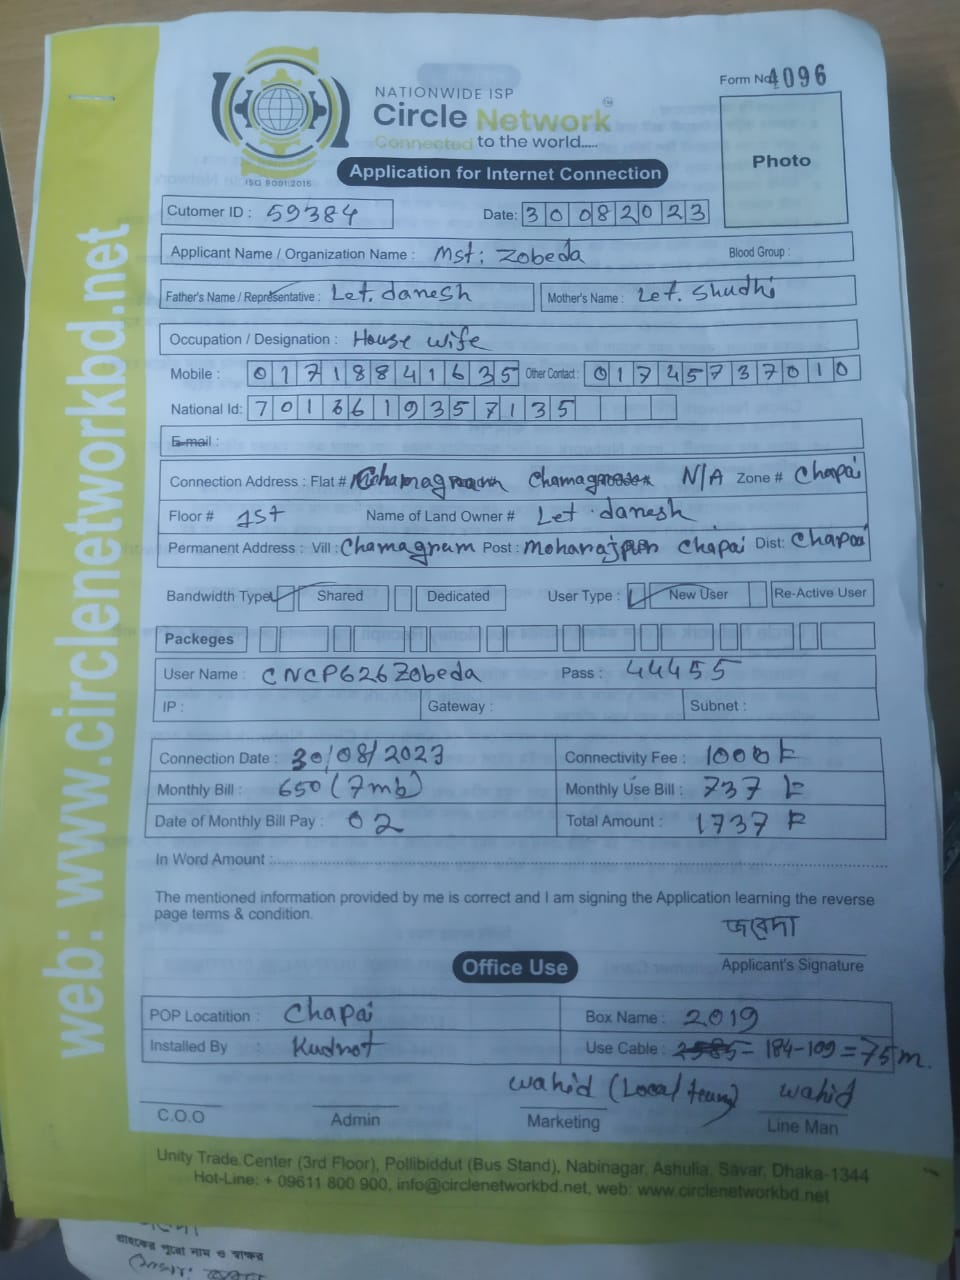 web: www.circlenetworkbd.net
NATIONWIDE ISP
Circle Network
Connected to the world.....
ISO 9001:2015
Form No 4096
Photo
Application for Internet Connection
Cutomer ID : 59384 Date: 30082023
Applicant Name / Organization Name : Mst: Zobeda Blood Group :
Father's Name / Representative : Let. danesh Mother's Name : Let. Shudhi
Occupation / Designation : House wife
Mobile : 01718841635 Other Contact : 01745737010
National Id: 7013619357135
E-mail :
Connection Address : Flat # N/A Zone # Chapai
Floor # 1st Name of Land Owner # Let. danesh
Permanent Address : Vill : Chamagram Post : Chapai Dist: Chapai
Bandwidth Type Shared Dedicated User Type : New User Re-Active User
Packeges
User Name : CNCP626Zobeda Pass : 44455
IP : Gateway : Subnet :
Connection Date : 30/08/2023 Connectivity Fee : 1000
Monthly Bill : 650 (7mb) Monthly Use Bill : 737
Date of Monthly Bill Pay : 02 Total Amount : 1737
In Word Amount :
The mentioned information provided by me is correct and I am signing the Application learning the reverse
page terms & condition.
জবেদা
Applicant's Signature
Office Use
POP Locatition : Chapai Box Name : 2019
Installed By : Kudrot Use Cable : 184-109=75m.
wahid (Local team) wahid
C.O.O Admin Marketing Line Man
Unity Trade Center (3rd Floor), Pollibiddut (Bus Stand), Nabinagar, Ashulia, Savar, Dhaka-1344
Hot-Line: + 09611 800 900, info@circlenetworkbd.net, web: www.circlenetworkbd.net
গ্রাহকের পুরো নাম ও স্বাক্ষর